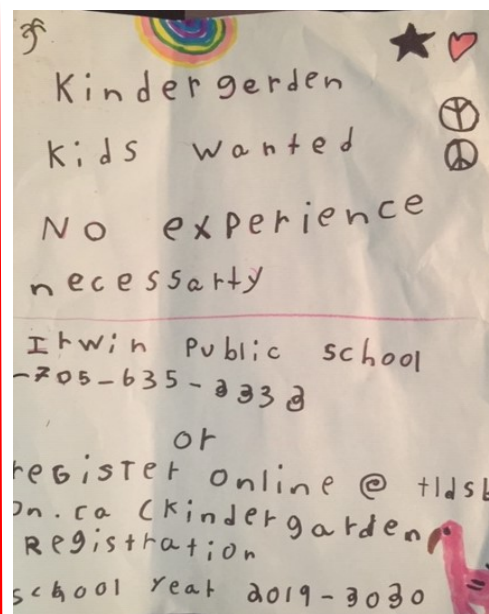 Kindergerden
Kids Wanted
No experience
necessarty
Irwin Public school
-705-635-3333
or
register online @ tldsb
on.ca (kindergarden
Registration
school year 2019-3030